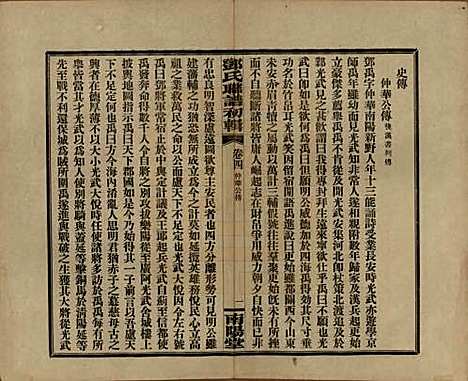 史傳
仲華公傳 後漢書列傳
鄧禹字仲華南陽新野人年十三能誦詩受業長安時光武亦遊學京
師禹年雖幼而見光武知非常人遂相親附數年歸家及漢兵起更始
立豪傑多薦舉禹禹不肯從及聞光武安集河北即杖策北渡追及於
鄴光武見之甚歡謂曰我得專封拜生遠來寧欲仕乎禹曰不願也光
武曰即如是何欲為禹曰但願明公威德加於四海禹得效其尺寸垂
功名於竹帛耳光武笑因留宿間語禹進說曰更始雖都關西今山東
未安赤眉青犢之屬動以萬數三輔假號往往群聚更始既未有所挫
而不自聽斷諸將皆庸人崛起志在財帛爭用威力朝夕自快而已非
鄧氏聯譜初輯 卷四 仲華公傳 一 南陽堂
有忠良明智深慮遠圖欲尊主安民者也四方分崩離析形勢可見明公雖
建藩輔之功猶恐無所成立於今之計莫如延攬英雄務悅民心立高
祖之業救萬民之命以公而慮天下不足定也光武大悅因令左右號
禹曰鄧將軍常宿止於中與定計議及王郎起兵光武自薊至信都使
禹發奔命得數千人令自將之別攻拔樂陽從至廣阿光武舍城樓上
披輿地圖指示禹曰天下郡國如是今始乃得其一子前言以吾慮天
下不足定何也禹曰方今海內淆亂人思明君猶赤子之慕慈母古之
興者在德薄厚不以大小光武大悅將騎與蓋延等擊銅馬於清陽延等
先至戰不利還保城為賊所圍禹遂進與戰破之生獲其大將從光武